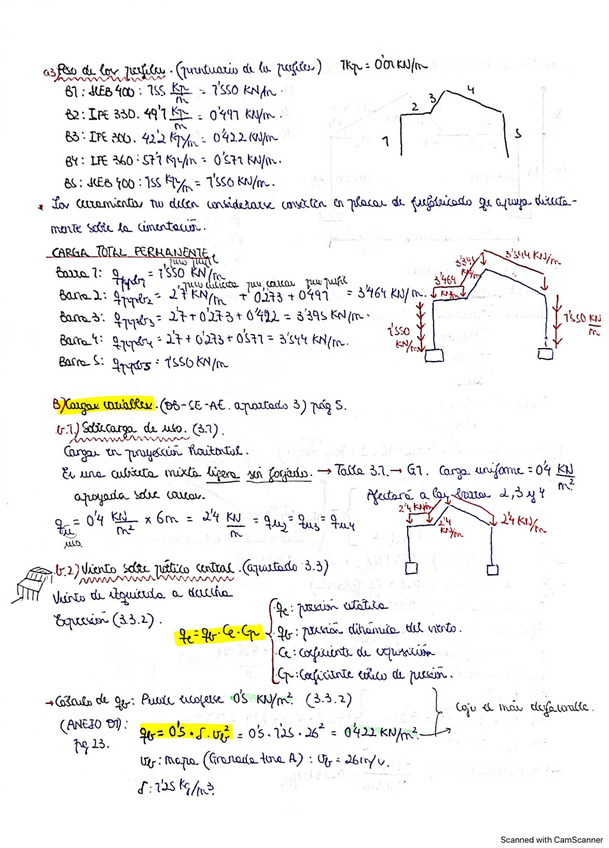 a3) Peso de los perfiles. (prontuario de los perfiles) 1Kp = 0'01 KN/m
B1: HEB 400: 155 Kp/m = 1'550 KN/m.
B2: IPE 330. 49'1 Kp/m = 0'491 KN/m.
B3: IPE 300. 42'2 Kp/m = 0'422 KN/m.
B4: IPE 360: 57'1 Kp/m = 0'571 KN/m.
B5: HEB 400: 155 Kp/m = 1'550 KN/m.
1 2 3 4 5
* Los cerramientos no deben considerarse consisten en placas de prefabricado que apoya directa-
mente sobre la cimentación.
CARGA TOTAL PERMANENTE
peso perfil
Barra 1: = 1'550 KN/m
peso cubierta peso correas peso perfil
Barra 2: = 2'7 KN/m + 0'273 + 0'491 = 3'464 KN/m.
Barra 3: = 2'7 + 0'273 + 0'422 = 3'395 KN/m.
Barra 4: = 2'7 + 0'273 + 0'571 = 3'544 KN/m.
Barra 5: = 1'550 KN/m
3'544 KN/m
3'464
KN/m
1'550
KN/m
1'550 KN/m
B) Cargas variables. (DB-SE-AE. apartado 3) pág 5.
b.1) Sobrecarga de uso. (3.1).
Cargas en proyección horizontal.
Es una cubierta mixta ligera sin forjado. → Tabla 3.1. → G1. Carga uniforme = 0'4 KN/m²
apoyada sobre correas. Afectará a las barras 2, 3 y 4
qu = 0'4 KN/m² x 6m = 2'4 KN/m = qu2 = qu3 = qu4
uso
2'4 KN/m
2'4 KN/m
2'4 KN/m
b.2) Viento sobre pórtico central. (apartado 3.3)
Viento de izquierda a derecha
Expresión (3.3.2).
qe = qb · Ce · Cp
qe: presión estática
qb: presión dinámica del viento.
Ce: coeficiente de exposición
Cp: coeficiente eólico de presión.
→ Cálculo de qb: Puede cogerse 0'5 KN/m² (3.3.2)
(ANEJO D1): qb = 0'5 · δ · vb² = 0'5 · 1'25 · 26² = 0'422 KN/m²
pg 23.
Cojo el más desfavorable.
vb: mapa (Granada zona A): vb = 26 m/s.
δ: 1'25 Kg/m³
Scanned with CamScanner